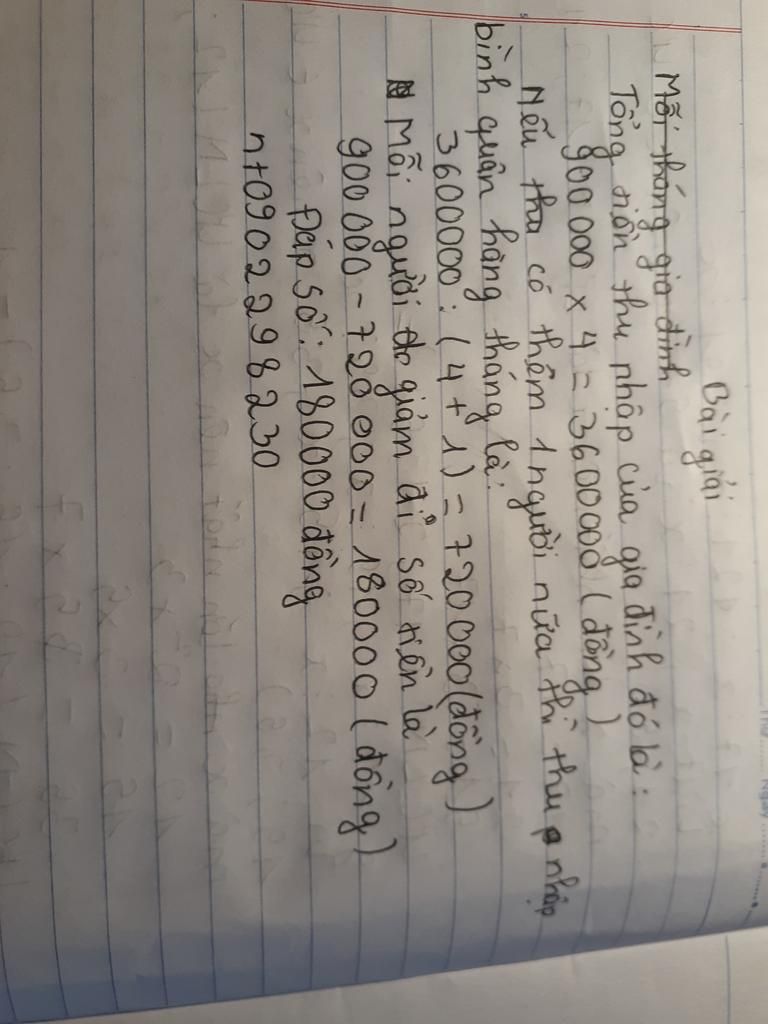 Bài giải
Mỗi tháng gia đình
Tổng tiền thu nhập của gia đình đó là:
900 000 x 4 = 3600000 (đồng)
Nếu thu có thêm 1 người nữa thì thu nhập
bình quân hàng tháng là:
3600000 : (4 + 1) = 720000 (đồng)
Mỗi người do giảm đi số tiền là
900000 - 720 000 = 180000 (đồng)
Đáp số: 180000 đồng
n+0902298230